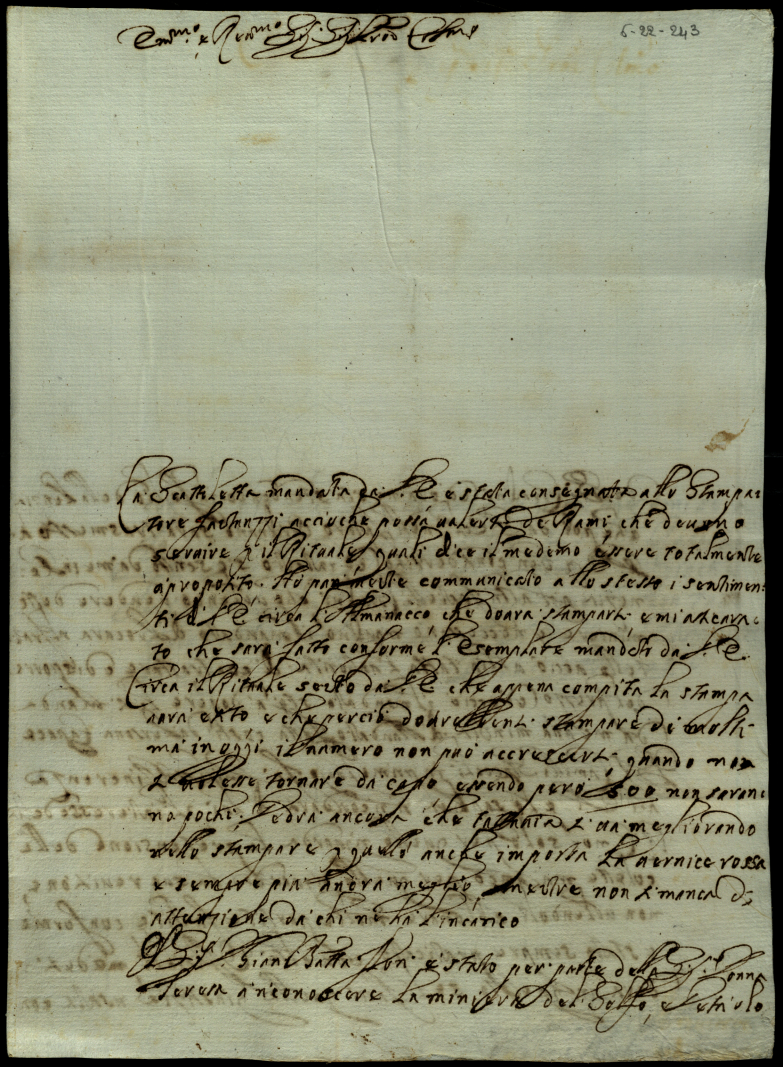 Em.mo e Rev.mo Sig.r Sig.r Prõn Col.mo
6-22-243
La Scatoletta mandata da V.E. è stata consegnata allo Stampa-
tore acciochè possa valersi de Rami che devono
servire p il Rituale, quali dice il medemo essere totalmente
a proposito. Hò parimente communicato allo stesso i sentimen-
ti di V.E. circa l'Almanacco che dovrà stamparsi e mi à ticura-
to che sarà fatto conforme l'Esemplare mandato da V.E.
Circa il Rituale certo da V.E. che appena compita la stampa
avrà exto e che perciò dovrebbensi stampare de molti
mà in oggi il numero non può accrescersi quando non
si volesse tornare da capo essendo però 500 non saran-
no pochi. Vedrà ancora che tuttavia si và megliorando
nello stampare p quello anche importa la vernice rossa
e sempre più andrà meglio, mentre non si manca di
attenzione da chi ne hà l'incarico
Il Sig.r Gian Batta è stato per parte della Sig.ra Donna
Teresa à riconoscere la miniera del Solfo, e Vetriolo